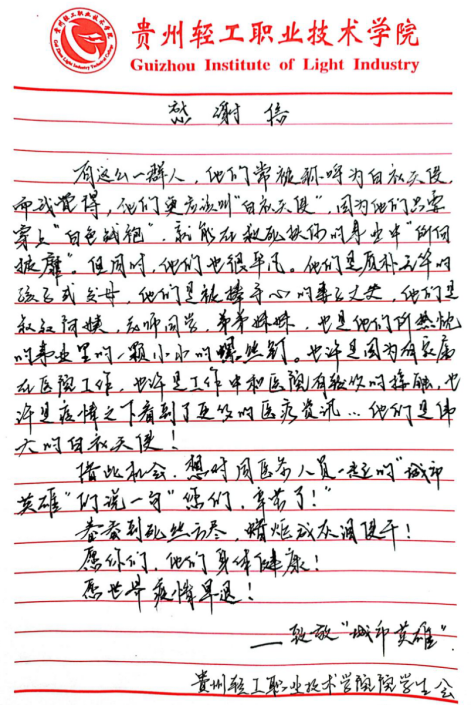 贵州轻工职业技术学院
Guizhou Institute of Light Industry
感谢信
有这么一群人，他们常被称呼为白衣天使，
而我觉得，他们更应该叫"白衣天使"，因为他们只要
穿上"白色战袍"，就能在救死扶伤的事业中"所向
披靡"。但同时，他们也很平凡。他们是质朴的
孩子或父母，他们是被捧手心的妻子丈夫，他们是
叔叔阿姨，老师同学，弟弟妹妹，也是他们所热忱
的事业里的一颗小小的螺丝钉。也许是因为有家属
在医院工作，也许是工作中和医院有较多的接触，也
许是疫情之下看到了更多的医疗资讯…他们是伟
大的白衣天使！
借此机会，想对同医务人员一起的"城市
英雄"们说一句"您们，辛苦了！"
春蚕到死丝方尽，蜡炬成灰泪便干！
愿你们，他们身体健康！
愿世界疫情早退！
—致敬"城市英雄"
贵州轻工职业技术学院院学生会